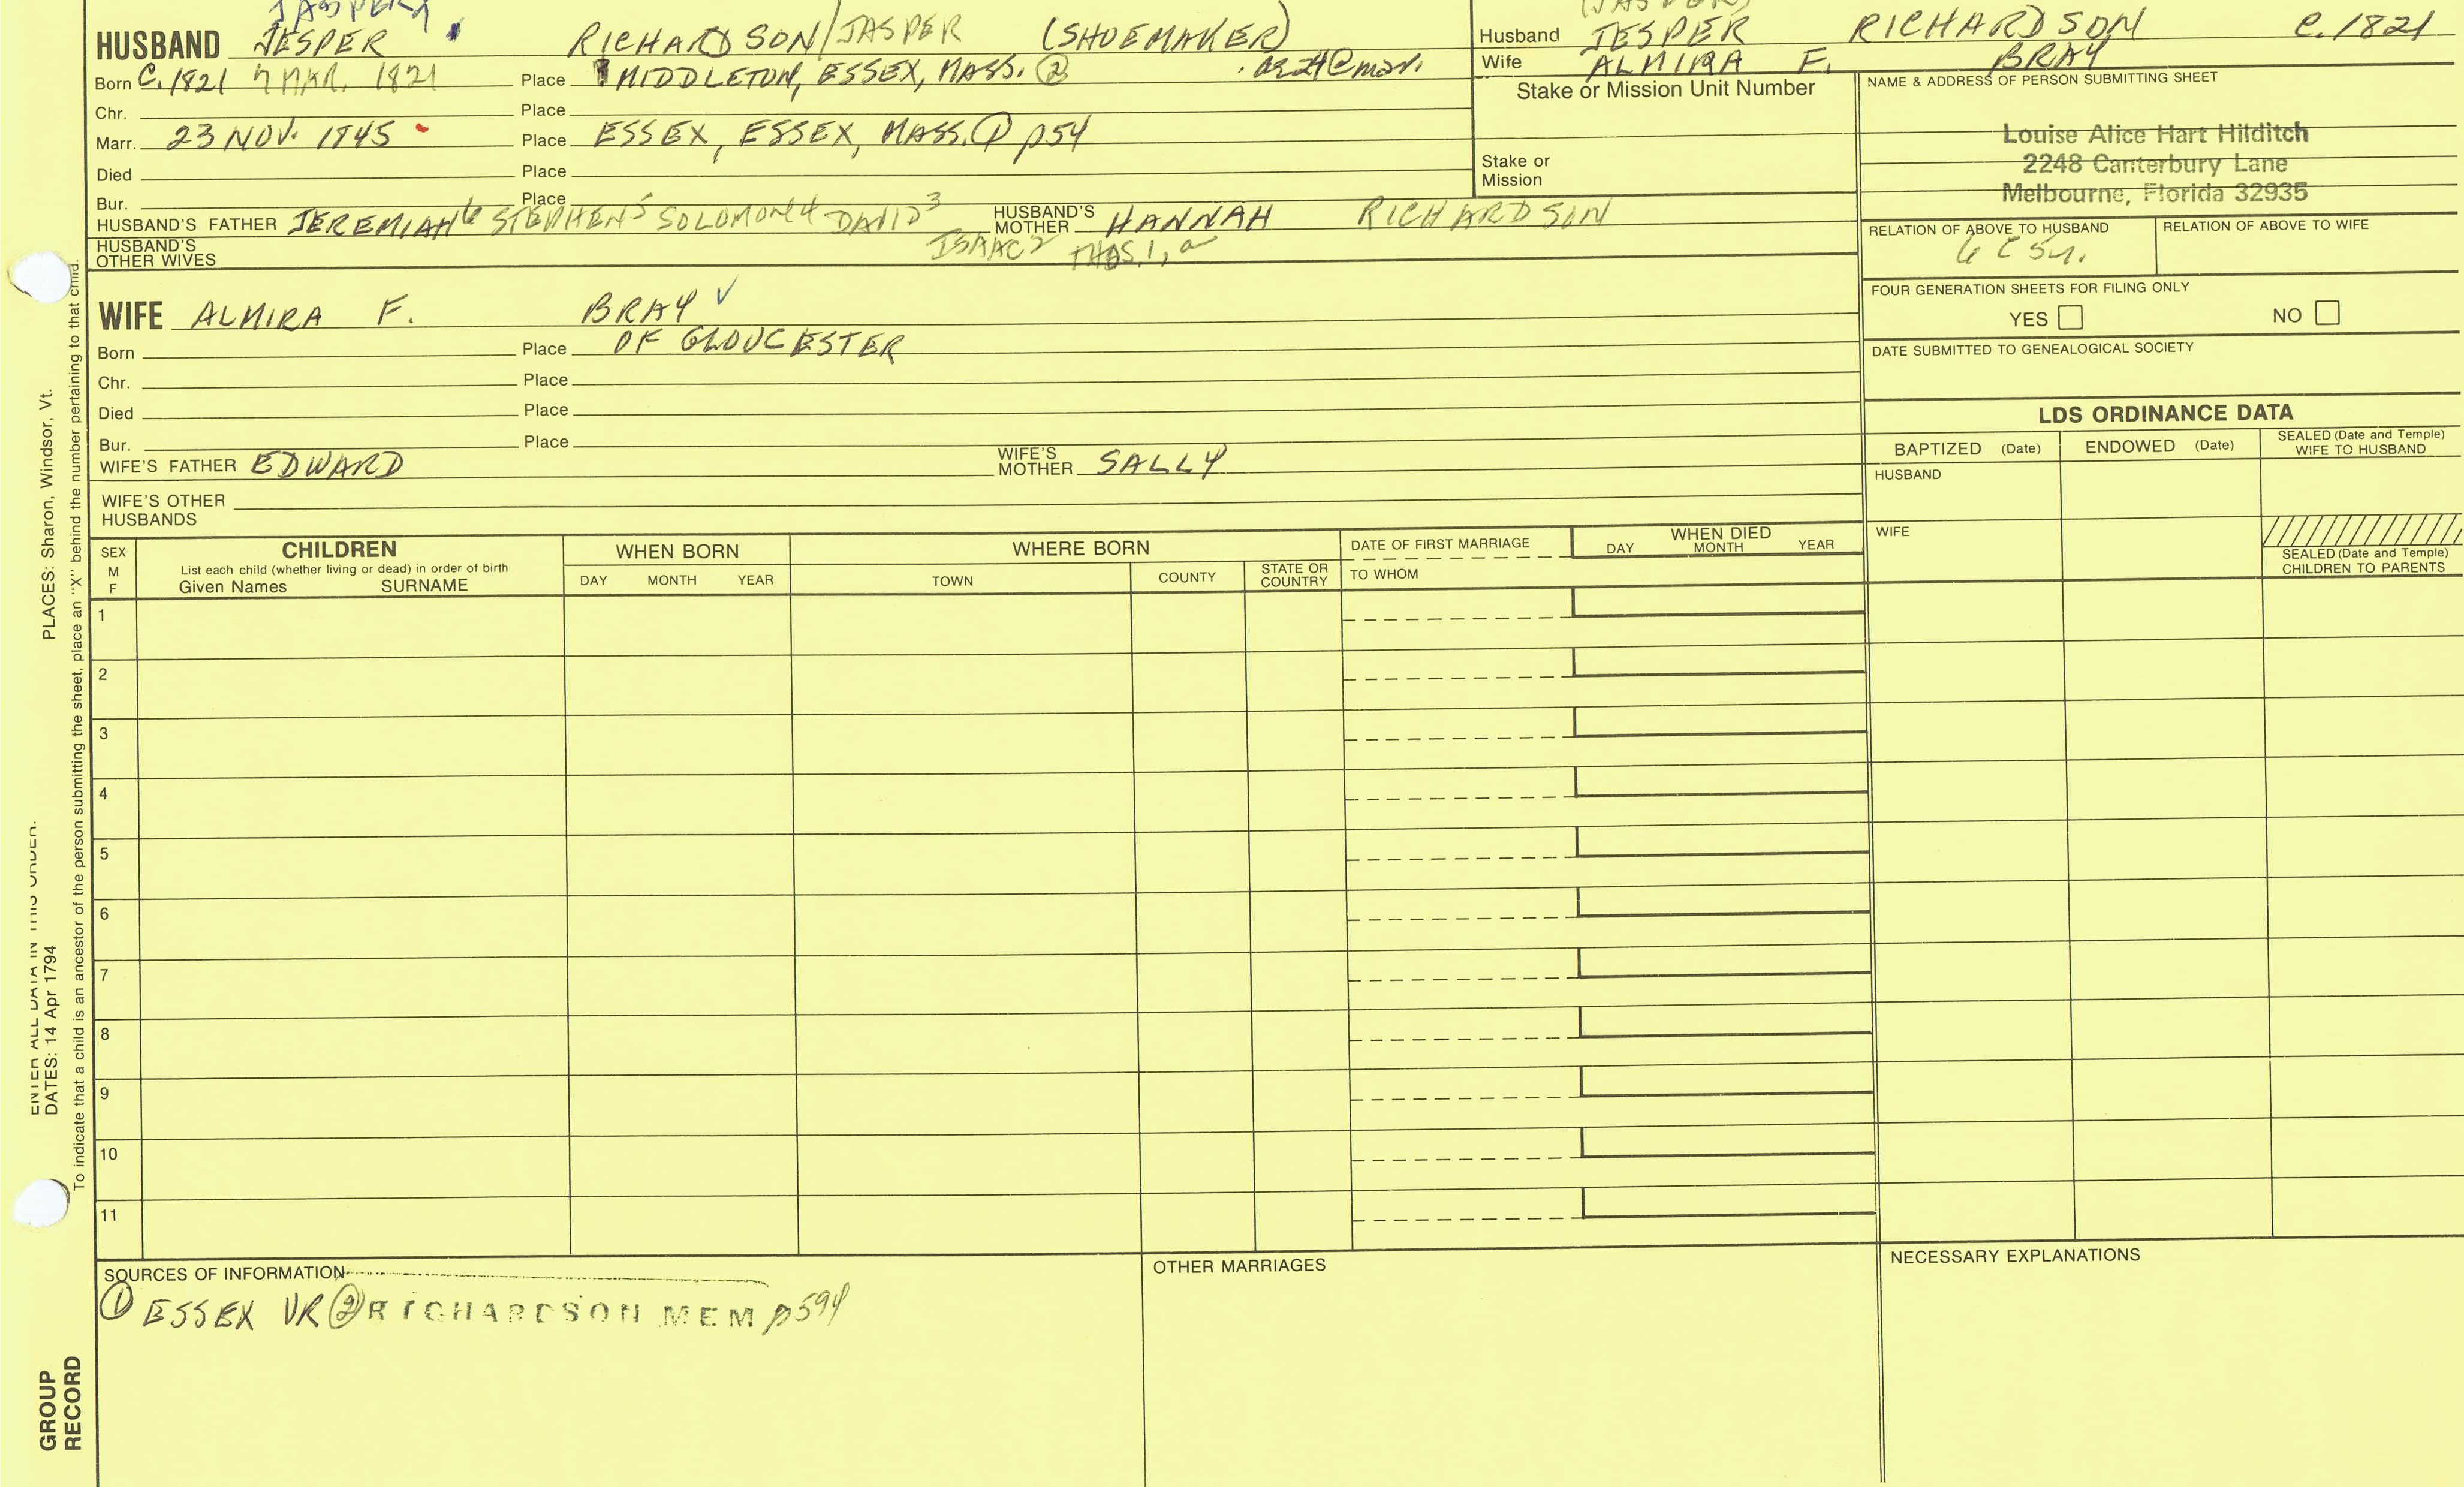 JASPER
HUSBAND JESPER RICHARDSON/JASPER (SHOEMAKER)
Born C. 1821 7 MAR. 1821 Place MIDDLETON, ESSEX, MASS. ②
Chr. Place
Marr. 23 NOV. 1845 Place ESSEX, ESSEX, MASS. ① p54
Died Place
Bur. Place
HUSBAND'S FATHER JEREMIAH6 STEPHEN5 SOLOMON4 DAVID3 HUSBAND'S MOTHER HANNAH RICHARDSON
ISAAC2 THOS.1,
HUSBAND'S OTHER WIVES
(JASPER)
Husband JESPER RICHARDSON C. 1821
Wife ALMIRA F. BRAY
Stake or Mission Unit Number
Stake or Mission
NAME & ADDRESS OF PERSON SUBMITTING SHEET
Louise Alice Hart Hilditch
2248 Canterbury Lane
Melbourne, Florida 32935
RELATION OF ABOVE TO HUSBAND RELATION OF ABOVE TO WIFE
FOUR GENERATION SHEETS FOR FILING ONLY
YES NO
DATE SUBMITTED TO GENEALOGICAL SOCIETY
WIFE ALMIRA F. BRAY
Born Place OF GLOUCESTER
Chr. Place
Died Place
Bur. Place
WIFE'S FATHER EDWARD WIFE'S MOTHER SALLY
WIFE'S OTHER HUSBANDS
LDS ORDINANCE DATA
BAPTIZED (Date) ENDOWED (Date) SEALED (Date and Temple) WIFE TO HUSBAND
HUSBAND
WIFE
SEALED (Date and Temple) CHILDREN TO PARENTS
SEX M F
CHILDREN
List each child (whether living or dead) in order of birth
Given Names SURNAME
WHEN BORN
DAY MONTH YEAR
WHERE BORN
TOWN COUNTY STATE OR COUNTRY
DATE OF FIRST MARRIAGE
TO WHOM
WHEN DIED
DAY MONTH YEAR
1
2
3
4
5
6
7
8
9
10
11
SOURCES OF INFORMATION
① ESSEX VR ② RICHARDSON MEM p594
OTHER MARRIAGES
NECESSARY EXPLANATIONS
ENTER ALL DATA IN THIS ORDER.
DATES: 14 Apr 1794
PLACES: Sharon, Windsor, Vt.
To indicate that a child is an ancestor of the person submitting the sheet, place an "X" behind the number pertaining to that child.
GROUP
RECORD